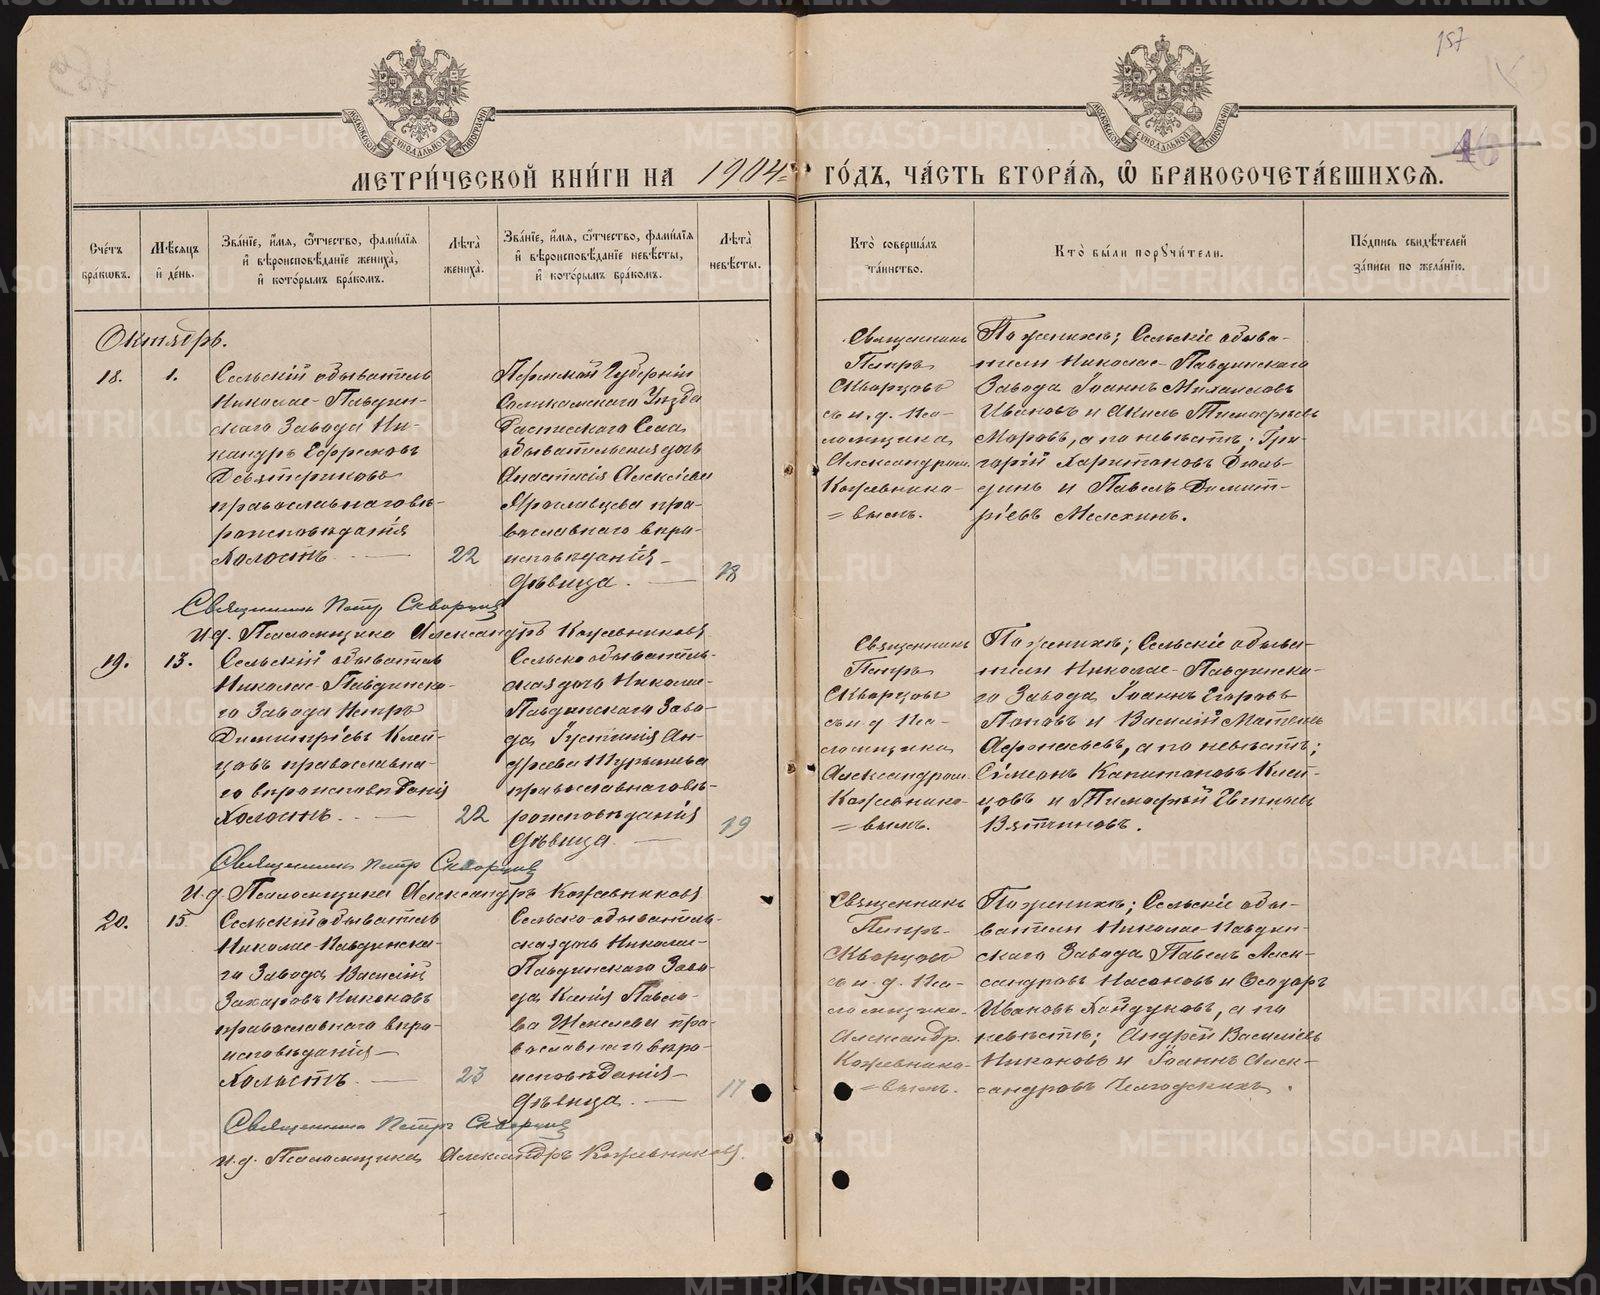 157
МЕТРИ́ЧЕСКОЙ КНИ́ГИ НА 1904 ГО́ДЪ, ЧА́СТЬ ВТОРА́Я, Ѡ БРАКОСОЧЕТА́ВШИХСЯ.
Сче́тъ бра́ковъ.
Мѣ́сяцъ и҆ де́нь.
Зва́нїе, и҆́мя, ѻ҆́тчество, фами́лїя и҆ вѣроисповѣ́данїе жениха̀, и҆ кото́рымъ бра́комъ.
Лѣта̀ жениха̀.
Зва́нїе, и҆́мя, ѻ҆́тчество, фами́лїя и҆ вѣроисповѣ́данїе невѣ́сты, и҆ кото́рымъ бра́комъ.
Лѣта̀ невѣ́сты.
Кто̀ соверша́лъ та́инство.
Кто̀ бы́ли порꙋчи́тели.
По́дпись свидѣ́телей за́писи по жела́нїю.
Октябрь.
18.
1.
Сельскій обыватель
Николае-Павдин-
скаго Завода Ни-
кандръ Ефремовъ
Девятериковъ
православнаго вѣ-
роисповѣданія
Холостъ.
22
Пермской Губерніи
Соликамскаго Уѣзда
Села
обывательская дочь
Анастасія Алексѣева
Ярославцева пра-
вославнаго веро-
исповѣданія
дѣвица.
18
Священникъ
Петръ
Скворцовъ
съ и. д. Пса-
ломщика
Александром
Кожевнико-
=вымъ.
По женихѣ; Сельскіе обыва-
тели Николае-Павдинскаго
Завода Іоаннъ Михаиловъ
Ивановъ и Акила Тимофѣевъ
Моровъ, а по невѣстѣ: Гри-
горій Харитоновъ Дюль-
динъ и Павелъ Димит-
ріевъ Мелехинъ.
Священникъ Петр Скворцов
И.д. Псаломщика Александръ Кожевниковъ
19.
13.
Сельскій обыватель
Николае-Павдинска-
го Завода Петръ
Димитріевъ Клей-
цовъ православна-
го вероисповѣданія
Холостъ.
22
Сельско обыватель-
ская дочь Николае-
Павдинскаго Заво-
да Іустинія Ан-
дреева Шурышева
православнаго вѣ-
роисповѣданія
дѣвица.
19
Священникъ
Петръ
Скворцовъ
съ и. д. Пса-
ломщика
Александром
Кожевнико-
=вымъ.
По женихѣ; Сельскіе обыва-
тели Николае-Павдинска-
го Завода Іоаннъ Егоровъ
Поповъ и Василій Матвѣевъ
Афонасьевъ, а по невѣстѣ;
Симеонъ Капитоновъ Клей-
цовъ и Тимофей Евгеньевъ
Вятчиновъ.
Священникъ Петр Скворцов
И.д. Псаломщика Александръ Кожевниковъ
20.
15
Сельскій обыватель
Николае-Павдинска-
го Завода Василій
Захаровъ Никоновъ
православнаго веро-
исповѣданія
Холостъ.
23
Сельско-обыватель-
ская дочь Николае-
Павдинскаго Заво-
да Ксенія Павло-
ва Шекелева пра-
вославнаго веро-
исповѣданія
дѣвица.
17
Священникъ
Петръ
Скворцовъ
съ и. д. Пса-
ломщика
Александр.
Кожевнико-
=вымъ.
По женихѣ; Сельскіе обы-
ватели Николае-Павдин-
скаго Завода Павелъ Алек-
сандровъ Насоновъ и Феодоръ
Ивановъ Хайдуковъ, а по
невѣстѣ; Андрей Васильевъ
Никоновъ и Іоаннъ Алек-
сандровъ
Священникъ Петръ Скворцов
и.д. Псаломщика Александръ Кожевниковъ.
METRIKI.GASO-URAL.RU